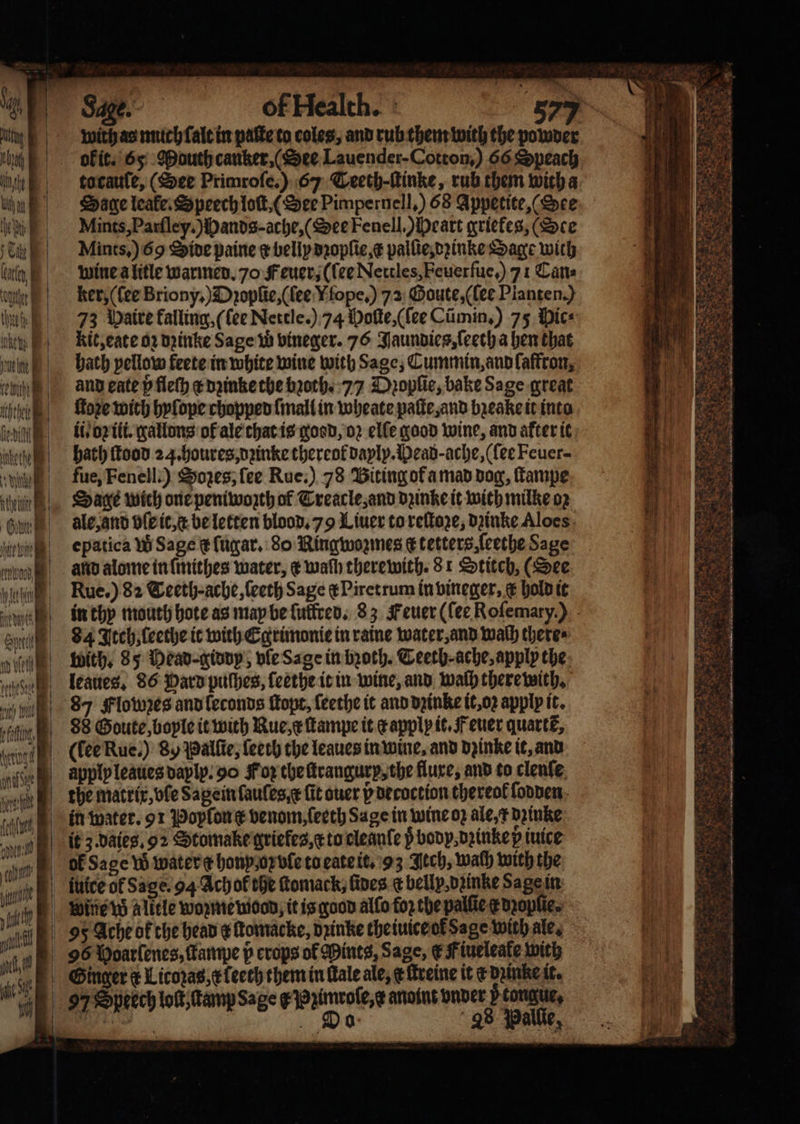 Sage. of Health. 577
with as much ſalt in paſte to coles, and rub them with the powder
of it. 65 Mouth canker, (See Lauender-Cotton,) 66 Speach
to cauſe, (See Primroſe.) 67 Teeth-ſtinke, rub them with a
Sage leafe. Speech loſt, (See Pimpernell,) 68 Appetite, (See
Mints, Parſley.) Hands-ache, (See Fenell,) Heart griefes, (See
Mints,) 69 Side paine & belly dropſie, & palſie, drinke Sage with
wine a litle warmed. 70 Feuer, (ſee Nettles, Feuerfue,) 71 Can-
ker, (ſee Briony,) Dropſie, (ſee Yſope,) 72 Goute, (ſee Planten.)
73 Haire falling, (ſee Nettle.) 74 Hoſte, (ſee Cũmin,) 75 Hic-
kit, eate or drinke Sage wͭ vineger. 76 Jaundies, ſeeth a hen that
hath yellow feete in white wine with Sage, Cummin, and ſaffron,
and eate þͤ fleſh & drinke the broth. 77 Dropſie, bake Sage great
ſtore with hyſope chopped ſmall in wheate paſte, and breake it into
ii. or iii. gallons of ale that is good, or elſe good wine, and after it
hath ſtood 24. houres, drinke thereof dayly. Head-ache, (ſee Feuer-
fue, Fenell.) Sores, ſee Rue.) 78 Biting of a mad dog, ſtampe
Sage with one peniworth of Treacle, and drinke it with milke or
ale, and vſe it, & be letten blood. 79 Liuer to reſtore, drinke Aloes
epatica wͭ Sage & ſugar. 80 Ringwormes & tetters, ſeethe Sage
and alome in ſmithes water, & waſh therewith. 81 Stitch, (See
Rue.) 82 Teeth-ache, ſeeth Sage & Piretrum in vineger, & hold it
in thy mouth hote as may be ſuffred. 83 Feuer (ſee Roſemary.)
84 Itch, ſeethe it with Egrimonie in raine water, and waſh there-
with. 85 Head-giddy, vſe Sage in broth. Teeth-ache, apply the
leaues. 86 Hard puſhes, ſeethe it in wine, and waſh therewith.
87 Flowres and ſeconds ſtopt, ſeethe it and drinke it, or apply it.
88 Goute, boyle it with Rue, & ſtampe it & apply it. Feuer quartẽ,
(ſee Rue.) 89 Palſie, ſeeth the leaues in wine, and drinke it, and
apply leaues dayly. 90 For the ſtrangury, the fluxe, and to clenſe
the matrix, vſe Sage in ſauſes, & ſit ouer þͤ decoction thereof ſodden
in water. 91 Poyſon & venom, ſeeth Sage in wine or ale, & drinke
it 3. daies. 92 Stomake griefes, & to cleanſe þͤ body, drinke þͤ iuice
of Sage wͭ water & hony, or vſe to eate it. 93 Itch, waſh with the
iuice of Sage. 94 Ach of the ſtomack, ſides & belly, drinke Sage in
wine wͭ a litle wormewood, it is good alſo for the palſie & dropſie.
95 Ache of the head & ſtomacke, drinke the iuice of Sage with ale.
96 Hoarſenes, ſtampe þͤ crops of Mints, Sage, & Fiueleafe with
Ginger & Licoras, & ſeeth them in ſtale ale, & ſtreine it & drinke it.
97 Speech loſt, ſtamp Sage & Primroſe, & anoint vnder þͤ tongue.
Do 98 Palſie,